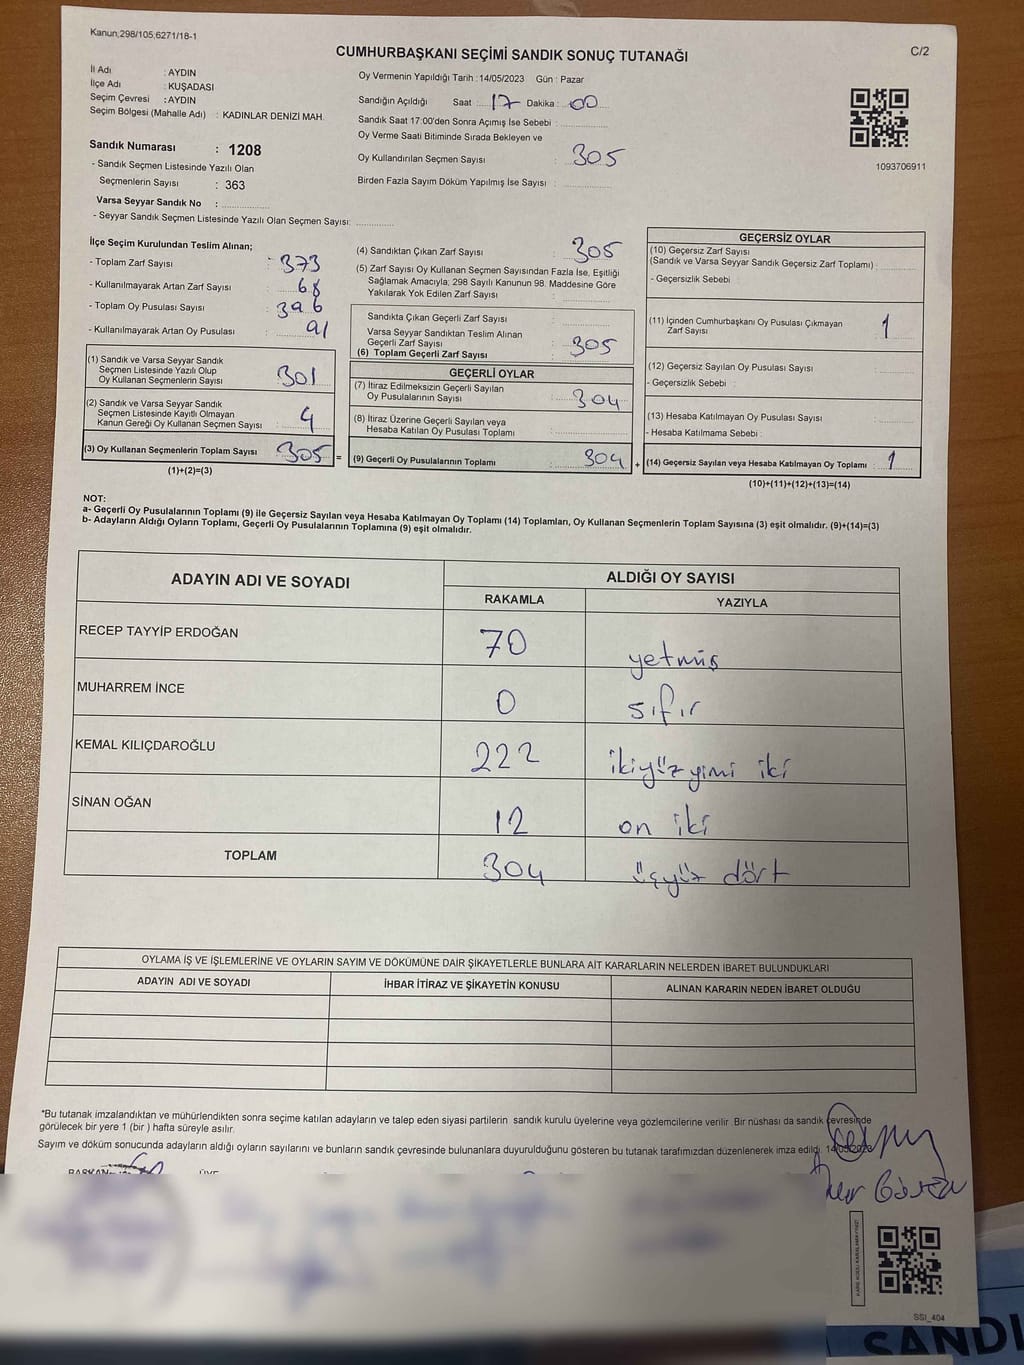 Kanun;298/105;6271/18-1
C/2
CUMHURBAŞKANI SEÇİMİ SANDIK SONUÇ TUTANAĞI
İl Adı : AYDIN
İlçe Adı : KUŞADASI
Seçim Çevresi : AYDIN
Seçim Bölgesi (Mahalle Adı) : KADINLAR DENİZİ MAH.
Sandık Numarası : 1208
- Sandık Seçmen Listesinde Yazılı Olan
Seçmenlerin Sayısı : 363
Varsa Seyyar Sandık No :
- Seyyar Sandık Seçmen Listesinde Yazılı Olan Seçmen Sayısı:
Oy Vermenin Yapıldığı Tarih : 14/05/2023 Gün : Pazar
Sandığın Açıldığı Saat : 17 Dakika : 00
Sandık Saat 17:00'den Sonra Açımış İse Sebebi :
Oy Verme Saati Bitiminde Sırada Bekleyen ve
Oy Kullandırılan Seçmen Sayısı : 305
Birden Fazla Sayım Döküm Yapılmış İse Sayısı :
1093706911
İlçe Seçim Kurulundan Teslim Alınan;
- Toplam Zarf Sayısı : 373
- Kullanılmayarak Artan Zarf Sayısı : 68
- Toplam Oy Pusulası Sayısı : 396
- Kullanılmayarak Artan Oy Pusulası : 91
(1) Sandık ve Varsa Seyyar Sandık
Seçmen Listesinde Yazılı Olup
Oy Kullanan Seçmenlerin Sayısı : 301
(2) Sandık ve Varsa Seyyar Sandık
Seçmen Listesinde Kayıtlı Olmayan
Kanun Gereği Oy Kullanan Seçmen Sayısı : 4
(3) Oy Kullanan Seçmenlerin Toplam Sayısı : 305 =
(1)+(2)=(3)
(4) Sandıktan Çıkan Zarf Sayısı : 305
(5) Zarf Sayısı Oy Kullanan Seçmen Sayısından Fazla İse, Eşitliği
Sağlamak Amacıyla; 298 Sayılı Kanunun 98. Maddesine Göre
Yakılarak Yok Edilen Zarf Sayısı :
Sandıkta Çıkan Geçerli Zarf Sayısı :
Varsa Seyyar Sandıktan Teslim Alınan
Geçerli Zarf Sayısı :
(6) Toplam Geçerli Zarf Sayısı : 305
GEÇERLİ OYLAR
(7) İtiraz Edilmeksizin Geçerli Sayılan
Oy Pusulalarının Sayısı : 304
(8) İtiraz Üzerine Geçerli Sayılan veya
Hesaba Katılan Oy Pusulası Toplamı :
(9) Geçerli Oy Pusulalarının Toplamı : 304 +
GEÇERSİZ OYLAR
(10) Geçersiz Zarf Sayısı
(Sandık ve Varsa Seyyar Sandık Geçersiz Zarf Toplamı) :
- Geçersizlik Sebebi :
(11) İçinden Cumhurbaşkanı Oy Pusulası Çıkmayan
Zarf Sayısı : 1
(12) Geçersiz Sayılan Oy Pusulası Sayısı :
- Geçersizlik Sebebi :
(13) Hesaba Katılmayan Oy Pusulası Sayısı :
- Hesaba Katılmama Sebebi :
(14) Geçersiz Sayılan veya Hesaba Katılmayan Oy Toplamı : 1
(10)+(11)+(12)+(13)=(14)
NOT:
a- Geçerli Oy Pusulalarının Toplamı (9) ile Geçersiz Sayılan veya Hesaba Katılmayan Oy Toplamı (14) Toplamları, Oy Kullanan Seçmenlerin Toplam Sayısına (3) eşit olmalıdır. (9)+(14)=(3)
b- Adayların Aldığı Oyların Toplamı, Geçerli Oy Pusulalarının Toplamına (9) eşit olmalıdır.
ADAYIN ADI VE SOYADI
ALDIĞI OY SAYISI
RAKAMLA YAZIYLA
RECEP TAYYİP ERDOĞAN 70 yetmiş
MUHARREM İNCE 0 sıfır
KEMAL KILIÇDAROĞLU 222 ikiyüz yimi iki
SİNAN OĞAN 12 on iki
TOPLAM 304 üçyüz dört
OYLAMA İŞ VE İŞLEMLERİNE VE OYLARIN SAYIM VE DÖKÜMÜNE DAİR ŞİKAYETLERLE BUNLARA AİT KARARLARIN NELERDEN İBARET BULUNDUKLARI
ADAYIN ADI VE SOYADI İHBAR İTİRAZ VE ŞİKAYETİN KONUSU ALINAN KARARIN NEDEN İBARET OLDUĞU
*Bu tutanak imzalandıktan ve mühürlendikten sonra seçime katılan adayların ve talep eden siyasi partilerin sandık kurulu üyelerine veya gözlemcilerine verilir. Bir nüshası da sandık çevresinde
görülecek bir yere 1 (bir ) hafta süreyle asılır.
Sayım ve döküm sonucunda adayların aldığı oyların sayılarını ve bunların sandık çevresinde bulunanlara duyurulduğunu gösteren bu tutanak tarafımızdan düzenlenerek imza edildi. 14/05/2023
BAŞKAN ÜYE
SSİ_404
SANDI